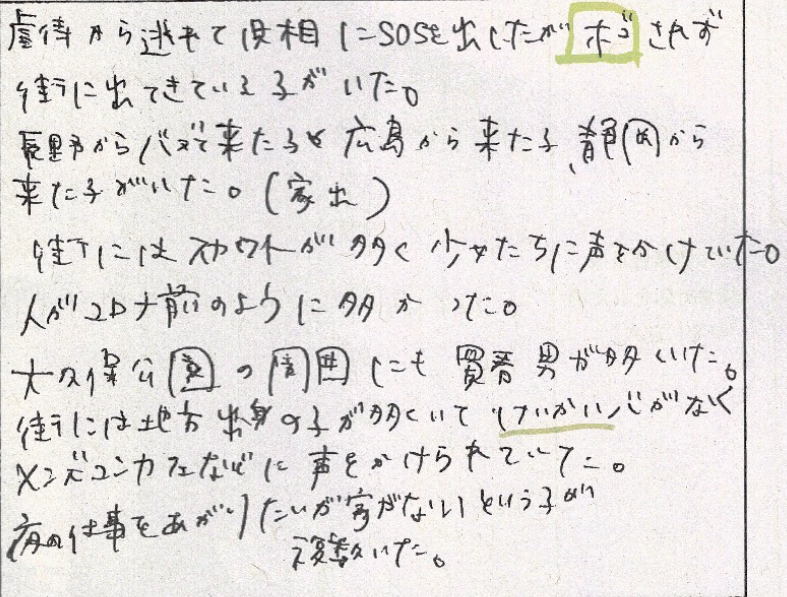 虐待から逃れて児相にSOSを出したがホゴされず
街に出てきている子がいた。
長野からバスで来た子や広島から来た子、静岡から
来た子がいた。(家出)
街にはスカウトが多く少女たちに声をかけていた。
人がコロナ前のように多かった。
大久保公園の周囲にも買春男が多くいた。
街には地方出身の子が多くいてけいかい心がなく
メンズコンカフェなどに声をかけられていた。
夜の仕事をあがりたいが家がないという子が
複数いた。